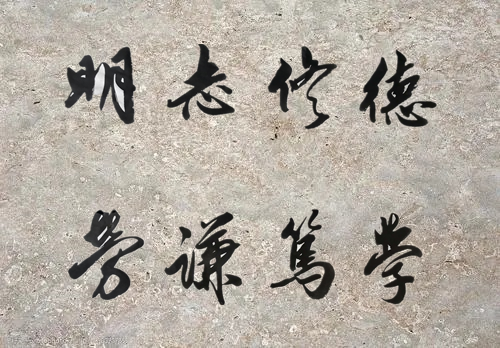 明志修德
劳谦笃学